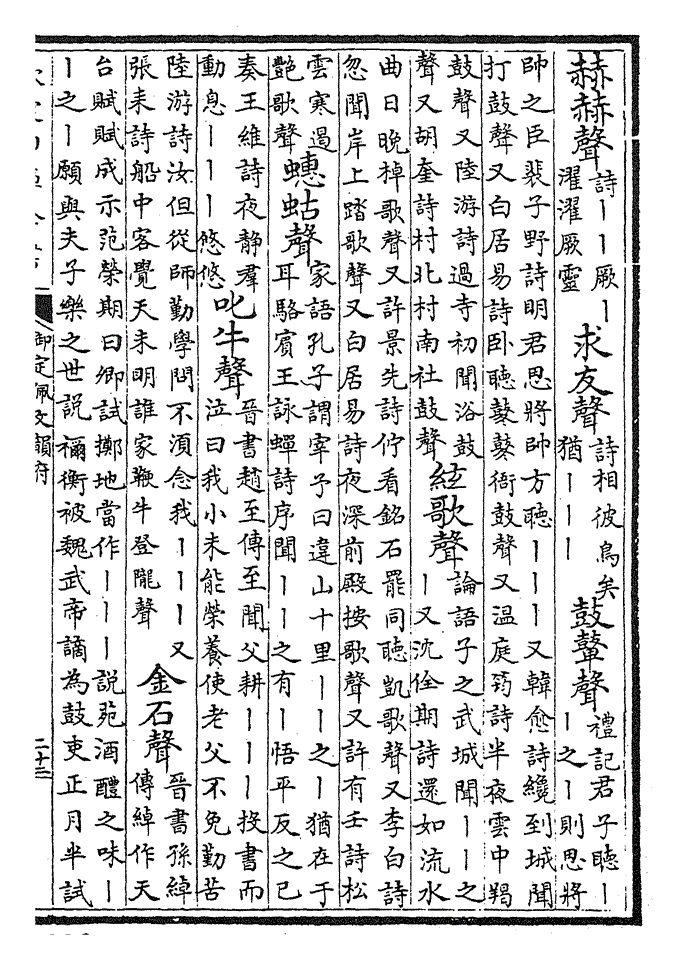 赫赫聲
詩丨丨厥丨
濯濯厥靈
求友聲
詩相彼鳥矣
猶丨丨丨
鼓鼙聲
禮記君子聽丨
丨之丨則思將
帥之臣裴子野詩明君思將帥方聽丨丨丨又韓愈詩纔到城聞
打鼓聲又白居易詩卧聽鼕鼕衙鼓聲又温庭筠詩半夜雲中羯
鼓聲又陸游詩過寺初聞浴鼓
聲又胡奎詩村北村南社鼓聲
絃歌聲
論語子之武城聞丨丨之
丨又沈佺期詩還如流水
曲日晚棹歌聲又許景先詩佇看銘石罷同聽凱歌聲又李白詩
忽聞岸上踏歌聲又白居易詩夜深前殿按歌聲又許有壬詩松
雲寒過
艷歌聲
蟪蛄聲
家語孔子謂宰予曰違山十里丨丨之丨猶在于
耳駱賓王詠蟬詩序聞丨丨之有丨悟平反之已
奏王維詩夜静羣
動息丨丨丨悠悠
叱牛聲
晉書趙至傳至聞父耕丨丨丨投書而
泣曰我小未能榮養使老父不免勤苦
陸游詩汝但從師勤學問不須念我丨丨丨又
張耒詩船中客覺天未明誰家鞭牛登隴聲
金石聲
晉書孫綽
傳綽作天
台賦賦成示范榮期曰卿試擲地當作丨丨丨說苑酒醴之味丨
丨之丨願與夫子樂之世説禰衡被魏武帝謫為鼓吏正月半試
御定佩文韻府
二十三